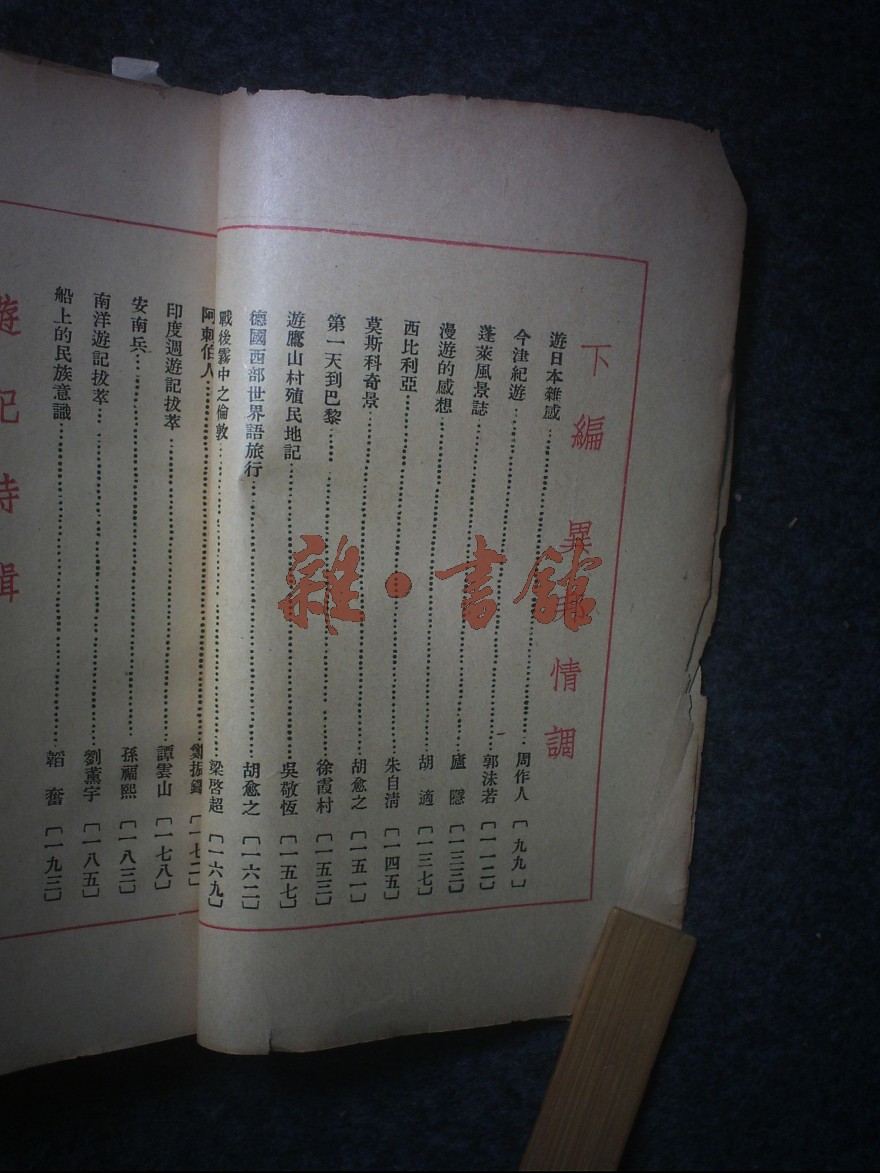 下編 異 情調
遊日本雜感……周作人 [九九]
今津紀遊……郭沫若 [一一二]
蓬萊風景誌……廬隱 [一三三]
漫遊的感想……胡適 [一三七]
西比利亞……朱自清 [一四五]
莫斯科奇景……胡愈之 [一五一]
第一天到巴黎……徐霞村 [一五三]
遊鷹山村殖民地記……吳敬恆 [一五七]
德國西部世界語旅行……胡愈之 [一六二]
戰後霧中之倫敦……梁啓超 [一六九]
阿剌伯人……鄭振鐸 [一七二]
印度週遊記拔萃……譚雲山 [一七八]
安南兵……孫福熙 [一八三]
南洋遊記拔萃……劉薰宇 [一八五]
船上的民族意識……韜奮 [一九三]
遊記特輯
雜·書館